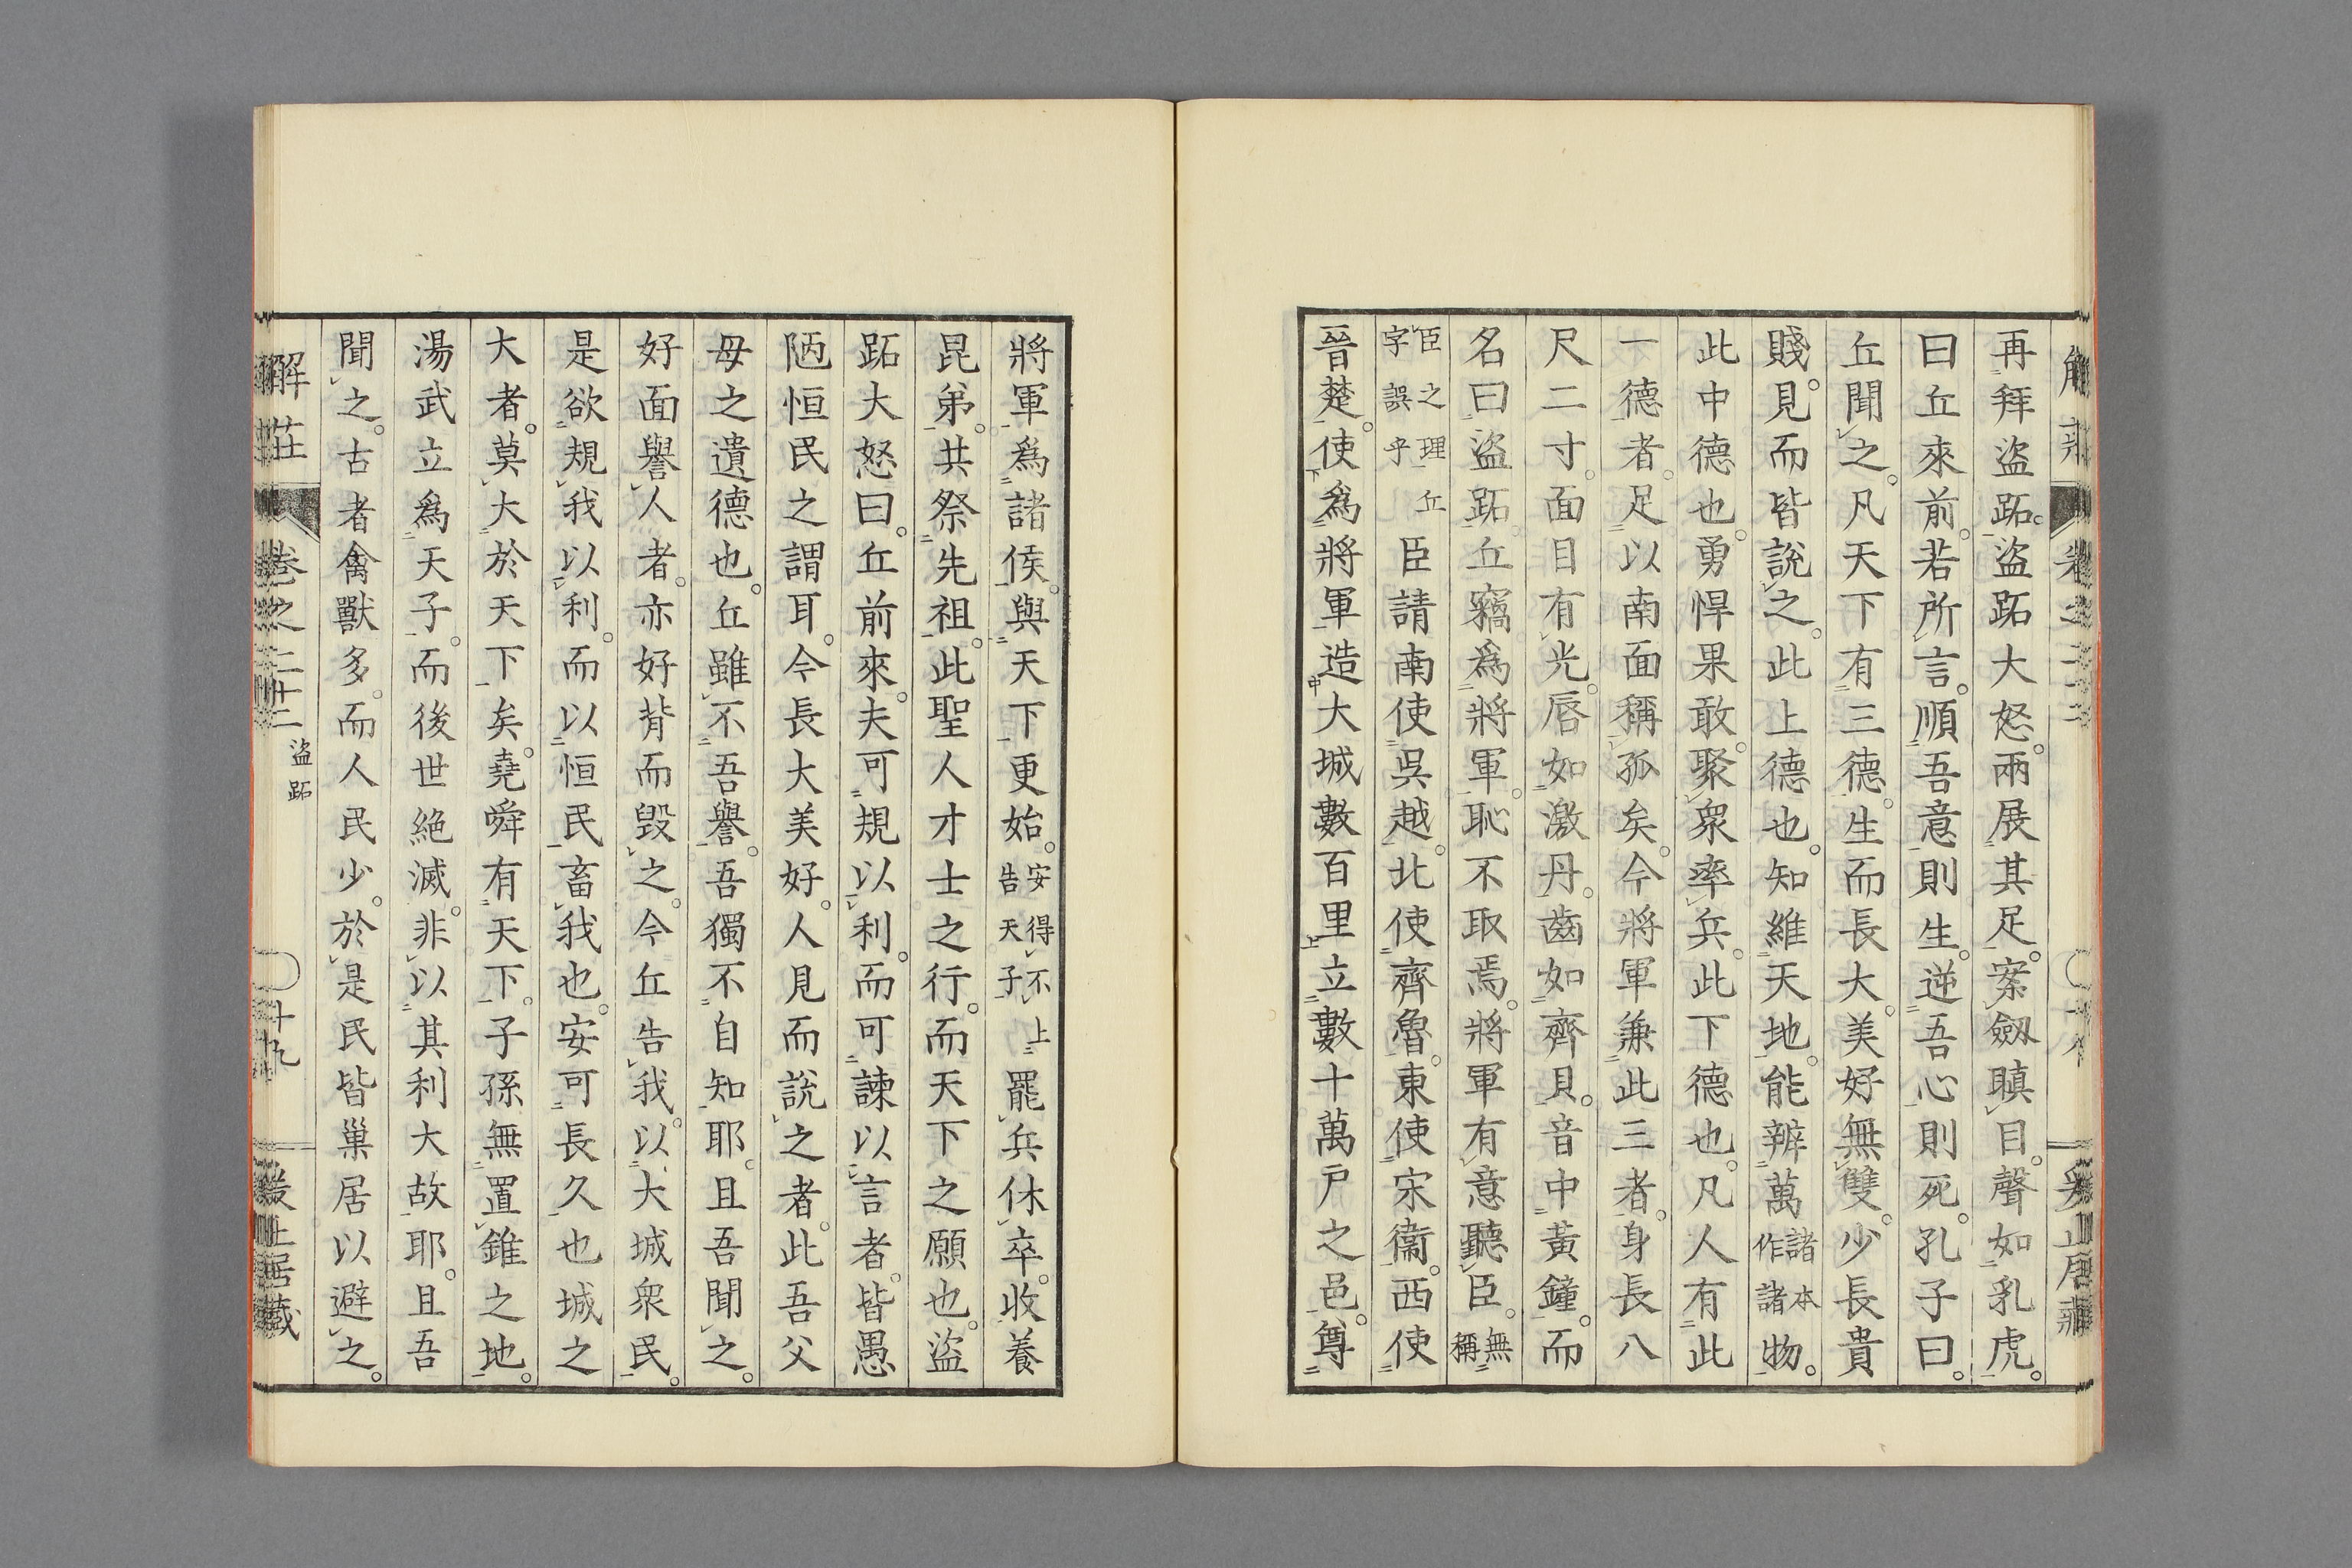 再拜盜跖。盜跖大怒。兩展其足。案劒瞋目。聲如乳虎。
曰丘來前。若所言。順吾意則生。逆吾心則死。孔子曰。
丘聞之。凡天下有三德。生而長大。美好無雙。少長貴
賤。見而皆說之。此上德也。知維天地。能辨萬諸本作諸物。
此中德也。勇悍果敢。聚衆率兵。此下德也。凡人有此
一德者。足以南面稱孤矣。今將軍兼此三者。身長八
尺二寸。面目有光。唇如激丹。齒如齊貝。音中黃鐘。而
名曰盜跖。丘竊爲將軍。恥不取焉。將軍有意聽臣。無稱
臣之理丘字誤乎臣請南使吳越。北使齊魯。東使宋衞。西使
晉楚。使爲將軍造大城數百里立數十萬戶之邑。尊
將軍爲諸侯。與天下更始。安得不上告天子罷兵休卒。收養
昆弟。共祭先祖。此聖人才士之行。而天下之願也。盜
跖大怒曰。丘前來。夫可規以利。而可諫以言者。皆愚
陋恒民之謂耳。今長大美好。人見而說之者。此吾父
母之遺德也。丘雖不吾譽。吾獨不自知耶。且吾聞之。
好面譽人者。亦好背而毀之。今丘告我。以大城衆民。
是欲規我以利。而以恒民畜我也。安可長久也城之
大者。莫大於天下矣。堯舜有天下。子孫無置錐之地。
湯武立爲天子。而後世絕滅。非以其利大故耶。且吾
聞之。古者禽獸多。而人民少。於是民皆巢居以避之。
解莊
卷之二十二
盜跖
十九